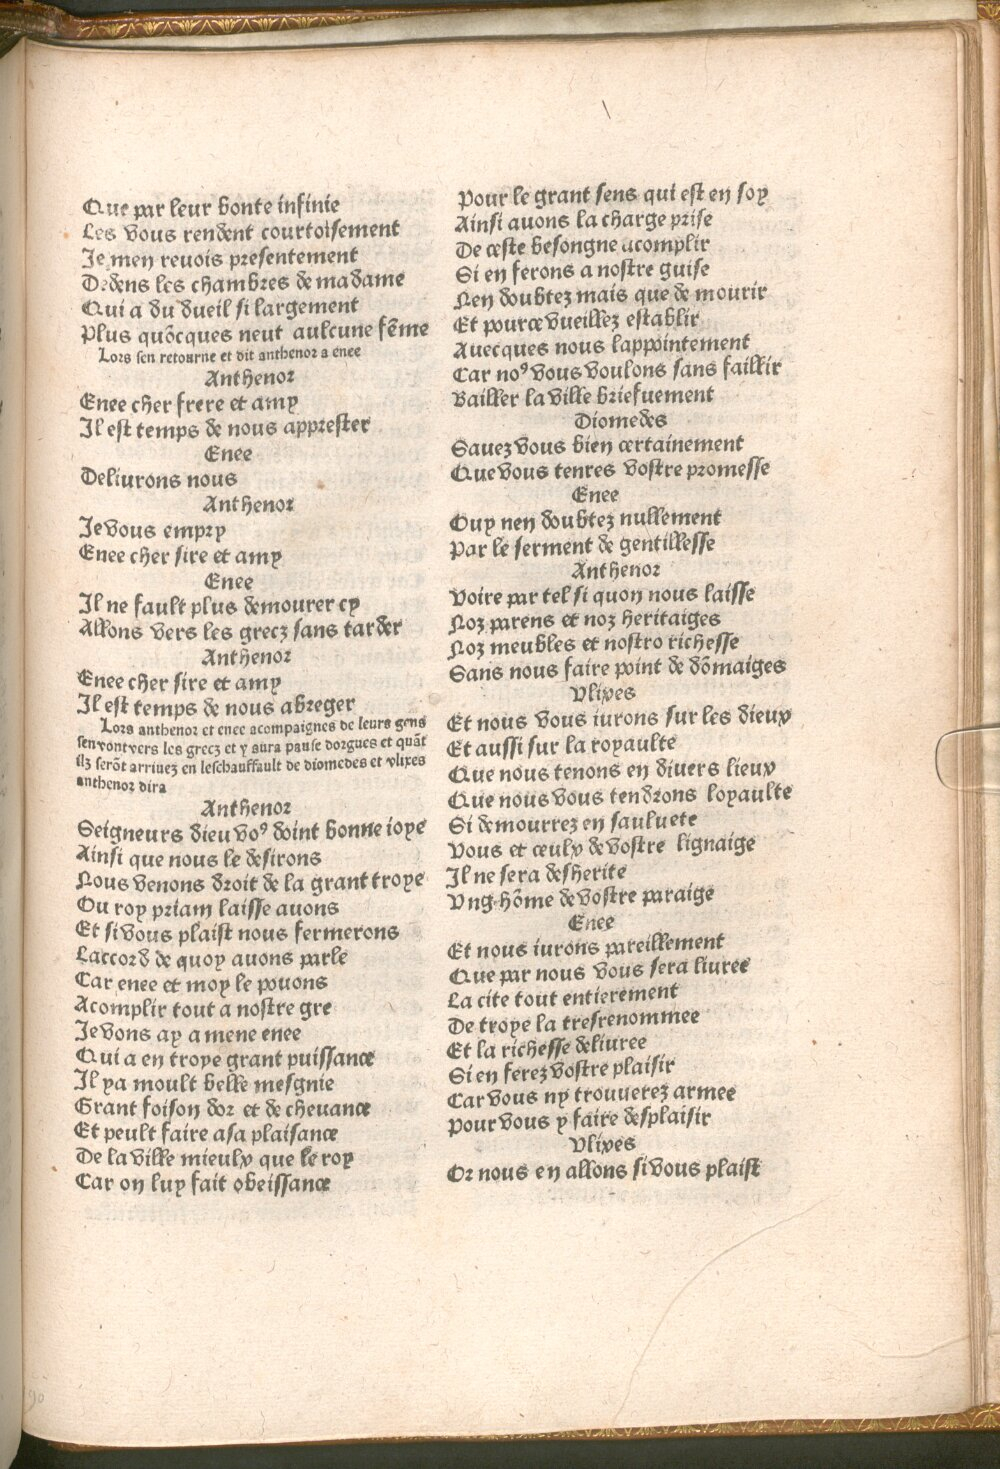 Que par leur bonte infinie
Les vous rendent courtoisement
Je men revois presentement
Dedens les chambres de ma dame
Qui a du dueil si largement
Plus quõcques neut aulcune fẽme
Lors sen retourne et dit anthenor a enee
Anthenor
Enee cher frere et amy
Il est temps de nous apprester
Enee
Delivrons nous
Anthenor
Je vous empry
Enee cher sire et amy
Enee
Il ne fault plus demourer cy
Allons vers les grecz sans tarder
Anthenor
Enee cher sire et amy
Il est temps de nous abreger
Lors anthenor et enee acompaignes de leurs gens
sen vont vers les grecz et y aura pause dorgues et quãt
ilz serõt arrivez en leschauffault de diomedes et vlixes
anthenor dira
Anthenor
Seigneurs dieu voꝰ doint bonne ioye
Ainsi que nous le desirons
Nous venons droit de la grant troye
Ou roy priam laisse avons
Et si vous plaist nous fermerons
Laccord de quoy avons parle
Car enee et moy le povons
Acomplir tout a nostre gre
Je vons ay a mene enee
Qui a en troye grant puissance
Il ya moult belle mesgnie
Grant foison dor et de chevance
Et peult faire a sa plaisance
De la ville mieulx que le roy
Car on luy fait obeissance
Pour le grant sens qui est en soy
Ainsi avons la charge prise
De ceste besongne acomplir
Si en ferons a nostre guise
Nen doubtez mais que de mourir
Et pource vueillez establir
Avecques nous lappointement
Car noꝰ vous voulons sans faillir
Bailler la ville briefvement
Diomedes
Savez vous bien certainement
Que vous tenres vostre promesse
Enee
Ouy nen doubtez nullement
Par le serment de gentillesse
Anthenor
Voire par tel si quon nous laisse
Noz parens et noz heritaiges
Noz meubles et nostro richesse
Sans nous faire point de dõmaiges
Vlixes
Et nous vous iurons sur les dieux
Et aussi sur la royaulte
Que nous tenons en divers lieux
Que nous vous tendrons loyaulte
Si demourrez en saulvete
Vous et ceulx de vostre lignaige
Il ne sera desherite
Vng hõme de vostre paraige
Enee
Et nous iurons pareillement
Que par nous vous sera livree
La cite tout entierement
De troye la tresrenommee
Et la richesse delivree
Si en ferez vostre plaisir
Car vous ny trouverez armee
Pour vous y faire desplaisir
Vlixes
Or nous en allons si vous plaist
90